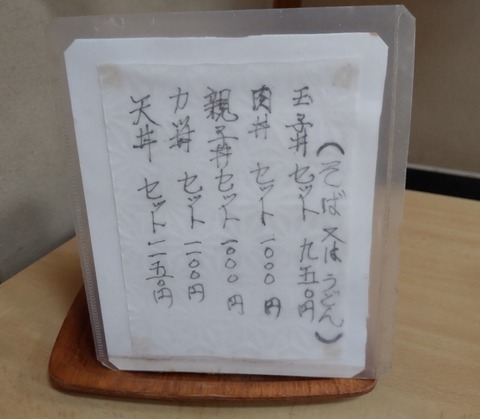 （そば又はうどん）
玉子丼セット 九五〇円
肉丼 セット 一〇〇〇円
親子丼セット 一〇〇〇円
カツ丼 セット 一一〇〇円
天丼 セット 一一五〇円